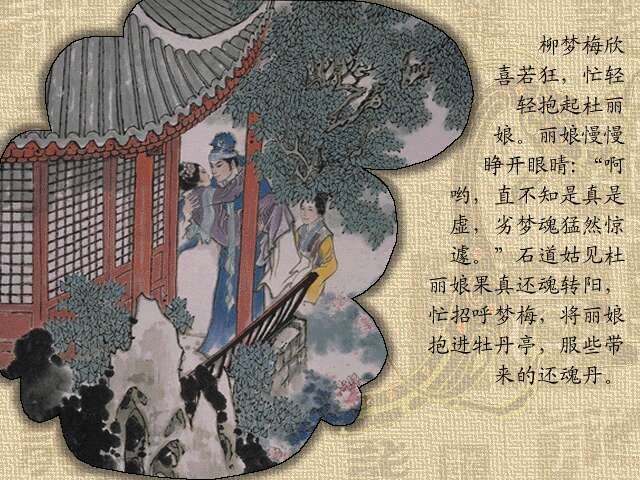 柳梦梅欣
喜若狂，忙轻
轻抱起杜丽
娘。丽娘慢慢
睁开眼睛：“啊
哟，直不知是真是
虚，劣梦魂猛然惊
遽。”石道姑见杜
丽娘果真还魂转阳，
忙招呼梦梅，将丽娘
抱进牡丹亭，服些带
来的还魂丹。